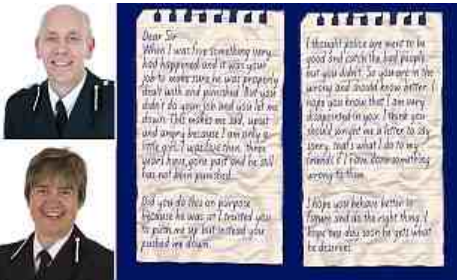 Dear Sir
When I was five something very
bad happened and it was your
job to make sure he was properly
dealt with and punished. But you
didn't do your job and you let me
down. This makes me sad, upset
and angry because I am only a
little girl. I was five then, three
years have gone past and he still
has not been punished.
Did you do this on purpose
because he was or I trusted you
to pick me up but instead you
pushed me down.
I thought police are ment to be
good and catch the bad people
but you didn't. So you are in the
wrong and should know better. I
hope you know that I am very
disappointed in you. I think you
should write me a letter to say
sorry, that's what I do to my
friends if I have done something
wrong to them.
I hope you behave better in
future and do the right thing. I
hope one day soon he gets what
he deserves.